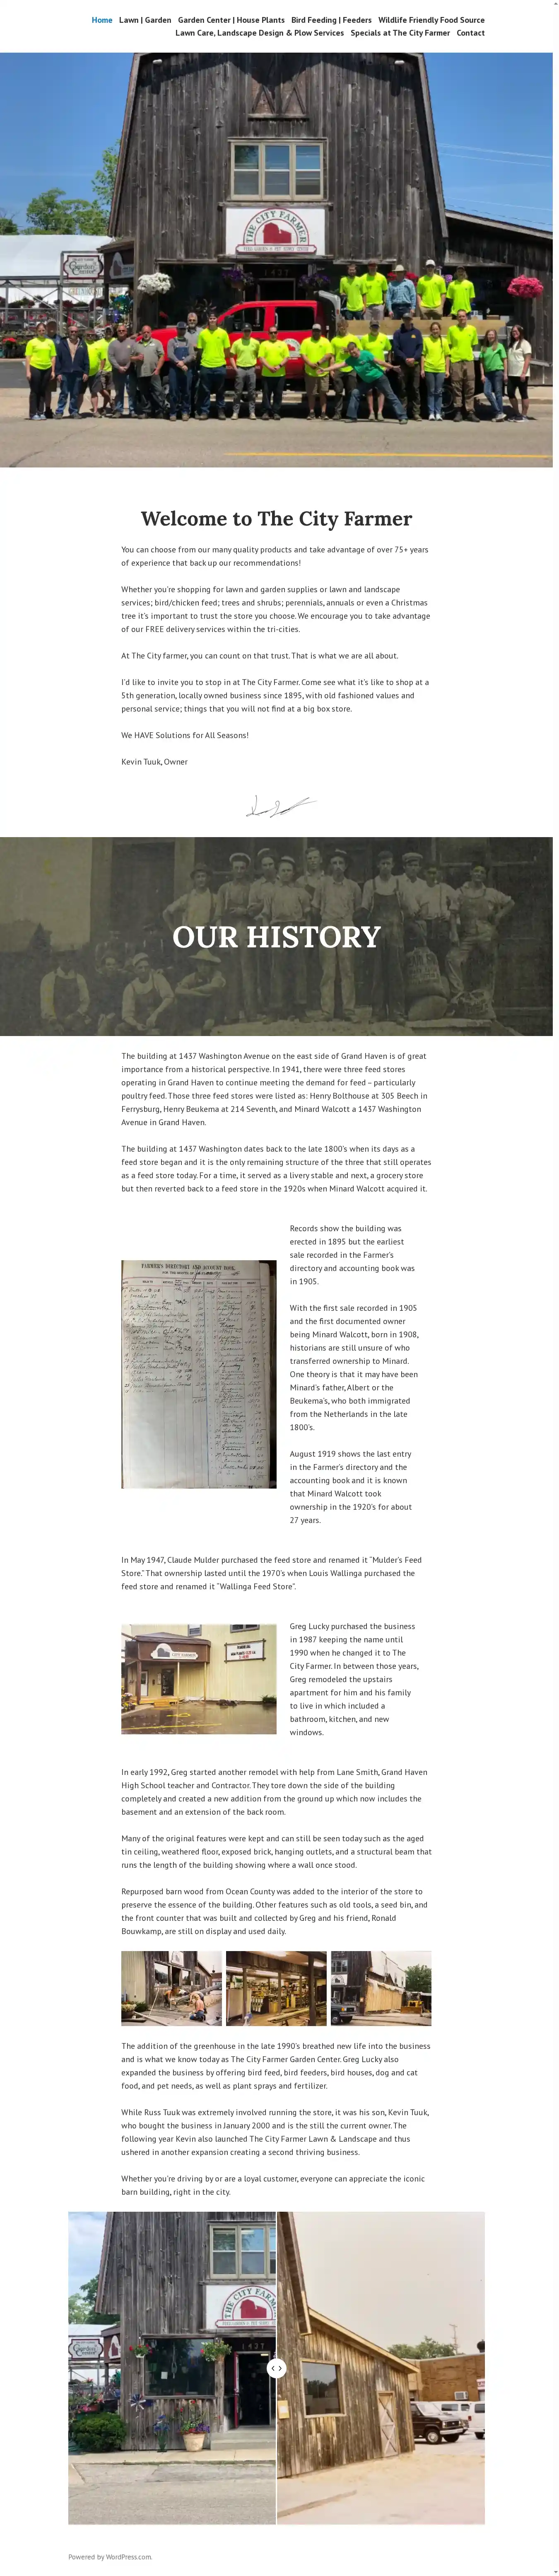 Home Lawn | Garden Garden Center | House Plants Bird Feeding | Feeders Wildlife Friendly Food Source
Lawn Care, Landscape Design & Plow Services Specials at The City Farmer Contact
THE CITY FARMER
1437
Garden
Welcome to The City Farmer
You can choose from our many quality products and take advantage of over 75+ years
of experience that back up our recommendations!
Whether you're shopping for lawn and garden supplies or lawn and landscape
services; bird/chicken feed; trees and shrubs; perennials, annuals or even a Christmas
tree it's important to trust the store you choose. We encourage you to take advantage
of our FREE delivery services within the tri-cities.
At The City farmer, you can count on that trust. That is what we are all about.
I'd like to invite you to stop in at The City Farmer. Come see what it's like to shop at a
5th generation, locally owned business since 1895, with old fashioned values and
personal service; things that you will not find at a big box store.
We HAVE Solutions for All Seasons!
Kevin Tuuk, Owner
OUR HISTORY
The building at 1437 Washington Avenue on the east side of Grand Haven is of great
importance from a historical perspective. In 1941, there were three feed stores
operating in Grand Haven to continue meeting the demand for feed – particularly
poultry feed. Those three feed stores were listed as: Henry Bolthouse at 305 Beech in
Ferrysburg, Henry Beukema at 214 Seventh, and Minard Walcott a 1437 Washington
Avenue in Grand Haven.
The building at 1437 Washington dates back to the late 1800's when its days as a
feed store began and it is the only remaining structure of the three that still operates
as a feed store today. For a time, it served as a livery stable and next, a grocery store
but then reverted back to a feed store in the 1920s when Minard Walcott acquired it.
FARMER'S DIRECTORY AND ACCOUNT BOOK
Records show the building was
erected in 1895 but the earliest
sale recorded in the Farmer's
directory and accounting book was
in 1905.
With the first sale recorded in 1905
and the first documented owner
being Minard Walcott, born in 1908,
historians are still unsure of who
transferred ownership to Minard.
One theory is that it may have been
Minard's father, Albert or the
Beukema's, who both immigrated
from the Netherlands in the late
1800's.
August 1919 shows the last entry
in the Farmer's directory and the
accounting book and it is known
that Minard Walcott took
ownership in the 1920's for about
27 years.
In May 1947, Claude Mulder purchased the feed store and renamed it "Mulder's Feed
Store." That ownership lasted until the 1970's when Louis Wallinga purchased the
feed store and renamed it "Wallinga Feed Store".
CITY FARMER
Greg Lucky purchased the business
in 1987 keeping the name until
1990 when he changed it to The
City Farmer. In between those years,
Greg remodeled the upstairs
apartment for him and his family
to live in which included a
bathroom, kitchen, and new
windows.
In early 1992, Greg started another remodel with help from Lane Smith, Grand Haven
High School teacher and Contractor. They tore down the side of the building
completely and created a new addition from the ground up which now includes the
basement and an extension of the back room.
Many of the original features were kept and can still be seen today such as the aged
tin ceiling, weathered floor, exposed brick, hanging outlets, and a structural beam that
runs the length of the building showing where a wall once stood.
Repurposed barn wood from Ocean County was added to the interior of the store to
preserve the essence of the building. Other features such as old tools, a seed bin, and
the front counter that was built and collected by Greg and his friend, Ronald
Bouwkamp, are still on display and used daily.
The addition of the greenhouse in the late 1990's breathed new life into the business
and is what we know today as The City Farmer Garden Center. Greg Lucky also
expanded the business by offering bird feed, bird feeders, bird houses, dog and cat
food, and pet needs, as well as plant sprays and fertilizer.
While Russ Tuuk was extremely involved running the store, it was his son, Kevin Tuuk,
who bought the business in January 2000 and is the still the current owner. The
following year Kevin also launched The City Farmer Lawn & Landscape and thus
ushered in another expansion creating a second thriving business.
Whether you're driving by or are a loyal customer, everyone can appreciate the iconic
barn building, right in the city.
THE CITY FARM
Garden
1437
Powered by WordPress.com.